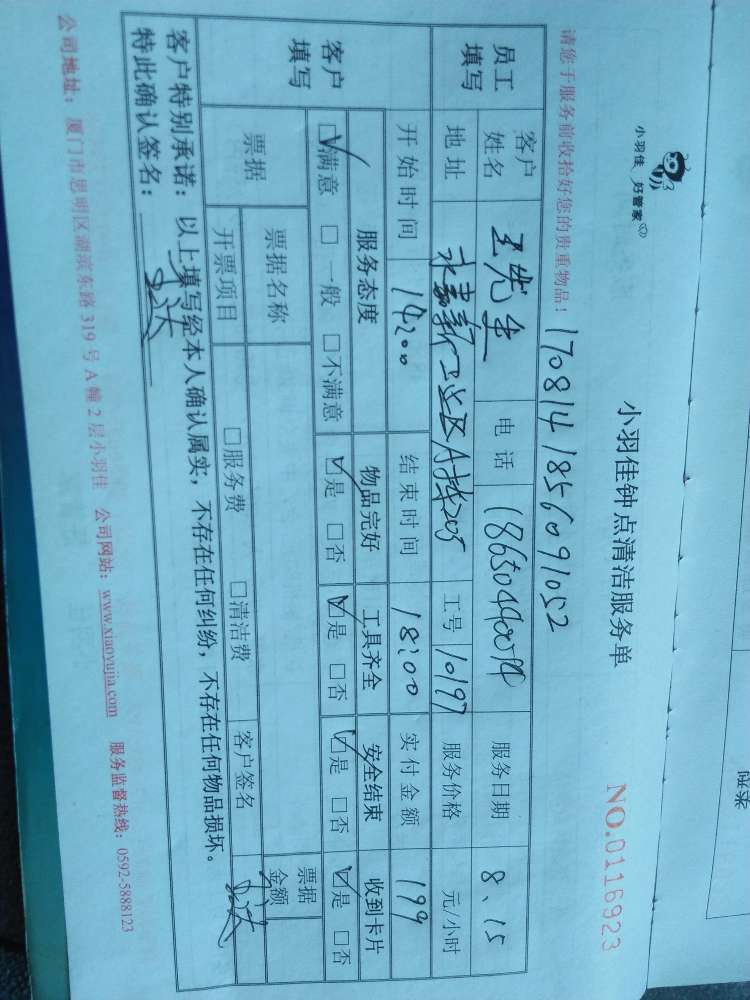 小羽佳 好管家
小羽佳钟点清洁服务单
NO.0116923
请您于服务前收拾好您的贵重物品！
1708141856091052
员工填写
客户姓名
王先生
电话
服务日期
8、15
地址
工号
10197
服务价格
元/小时
客户填写
开始时间
14:00
结束时间
18:00
实付金额
199
服务态度
物品完好
工具齐全
安全结束
收到卡片
☑满意 □一般 □不满意
☑是 □否
☑是 □否
☑是 □否
☑是 □否
票据
票据名称
票据金额
开票项目
□服务费 □清洁费
客户签名
客户特别承诺：以上填写经本人确认属实，不存在任何纠纷，不存在任何物品损坏。
特此确认签名：
公司地址：厦门市思明区湖滨东路319号A幢2层小羽佳 公司网站：www.xiaoyujia.com 服务监督热线：0592-5888123